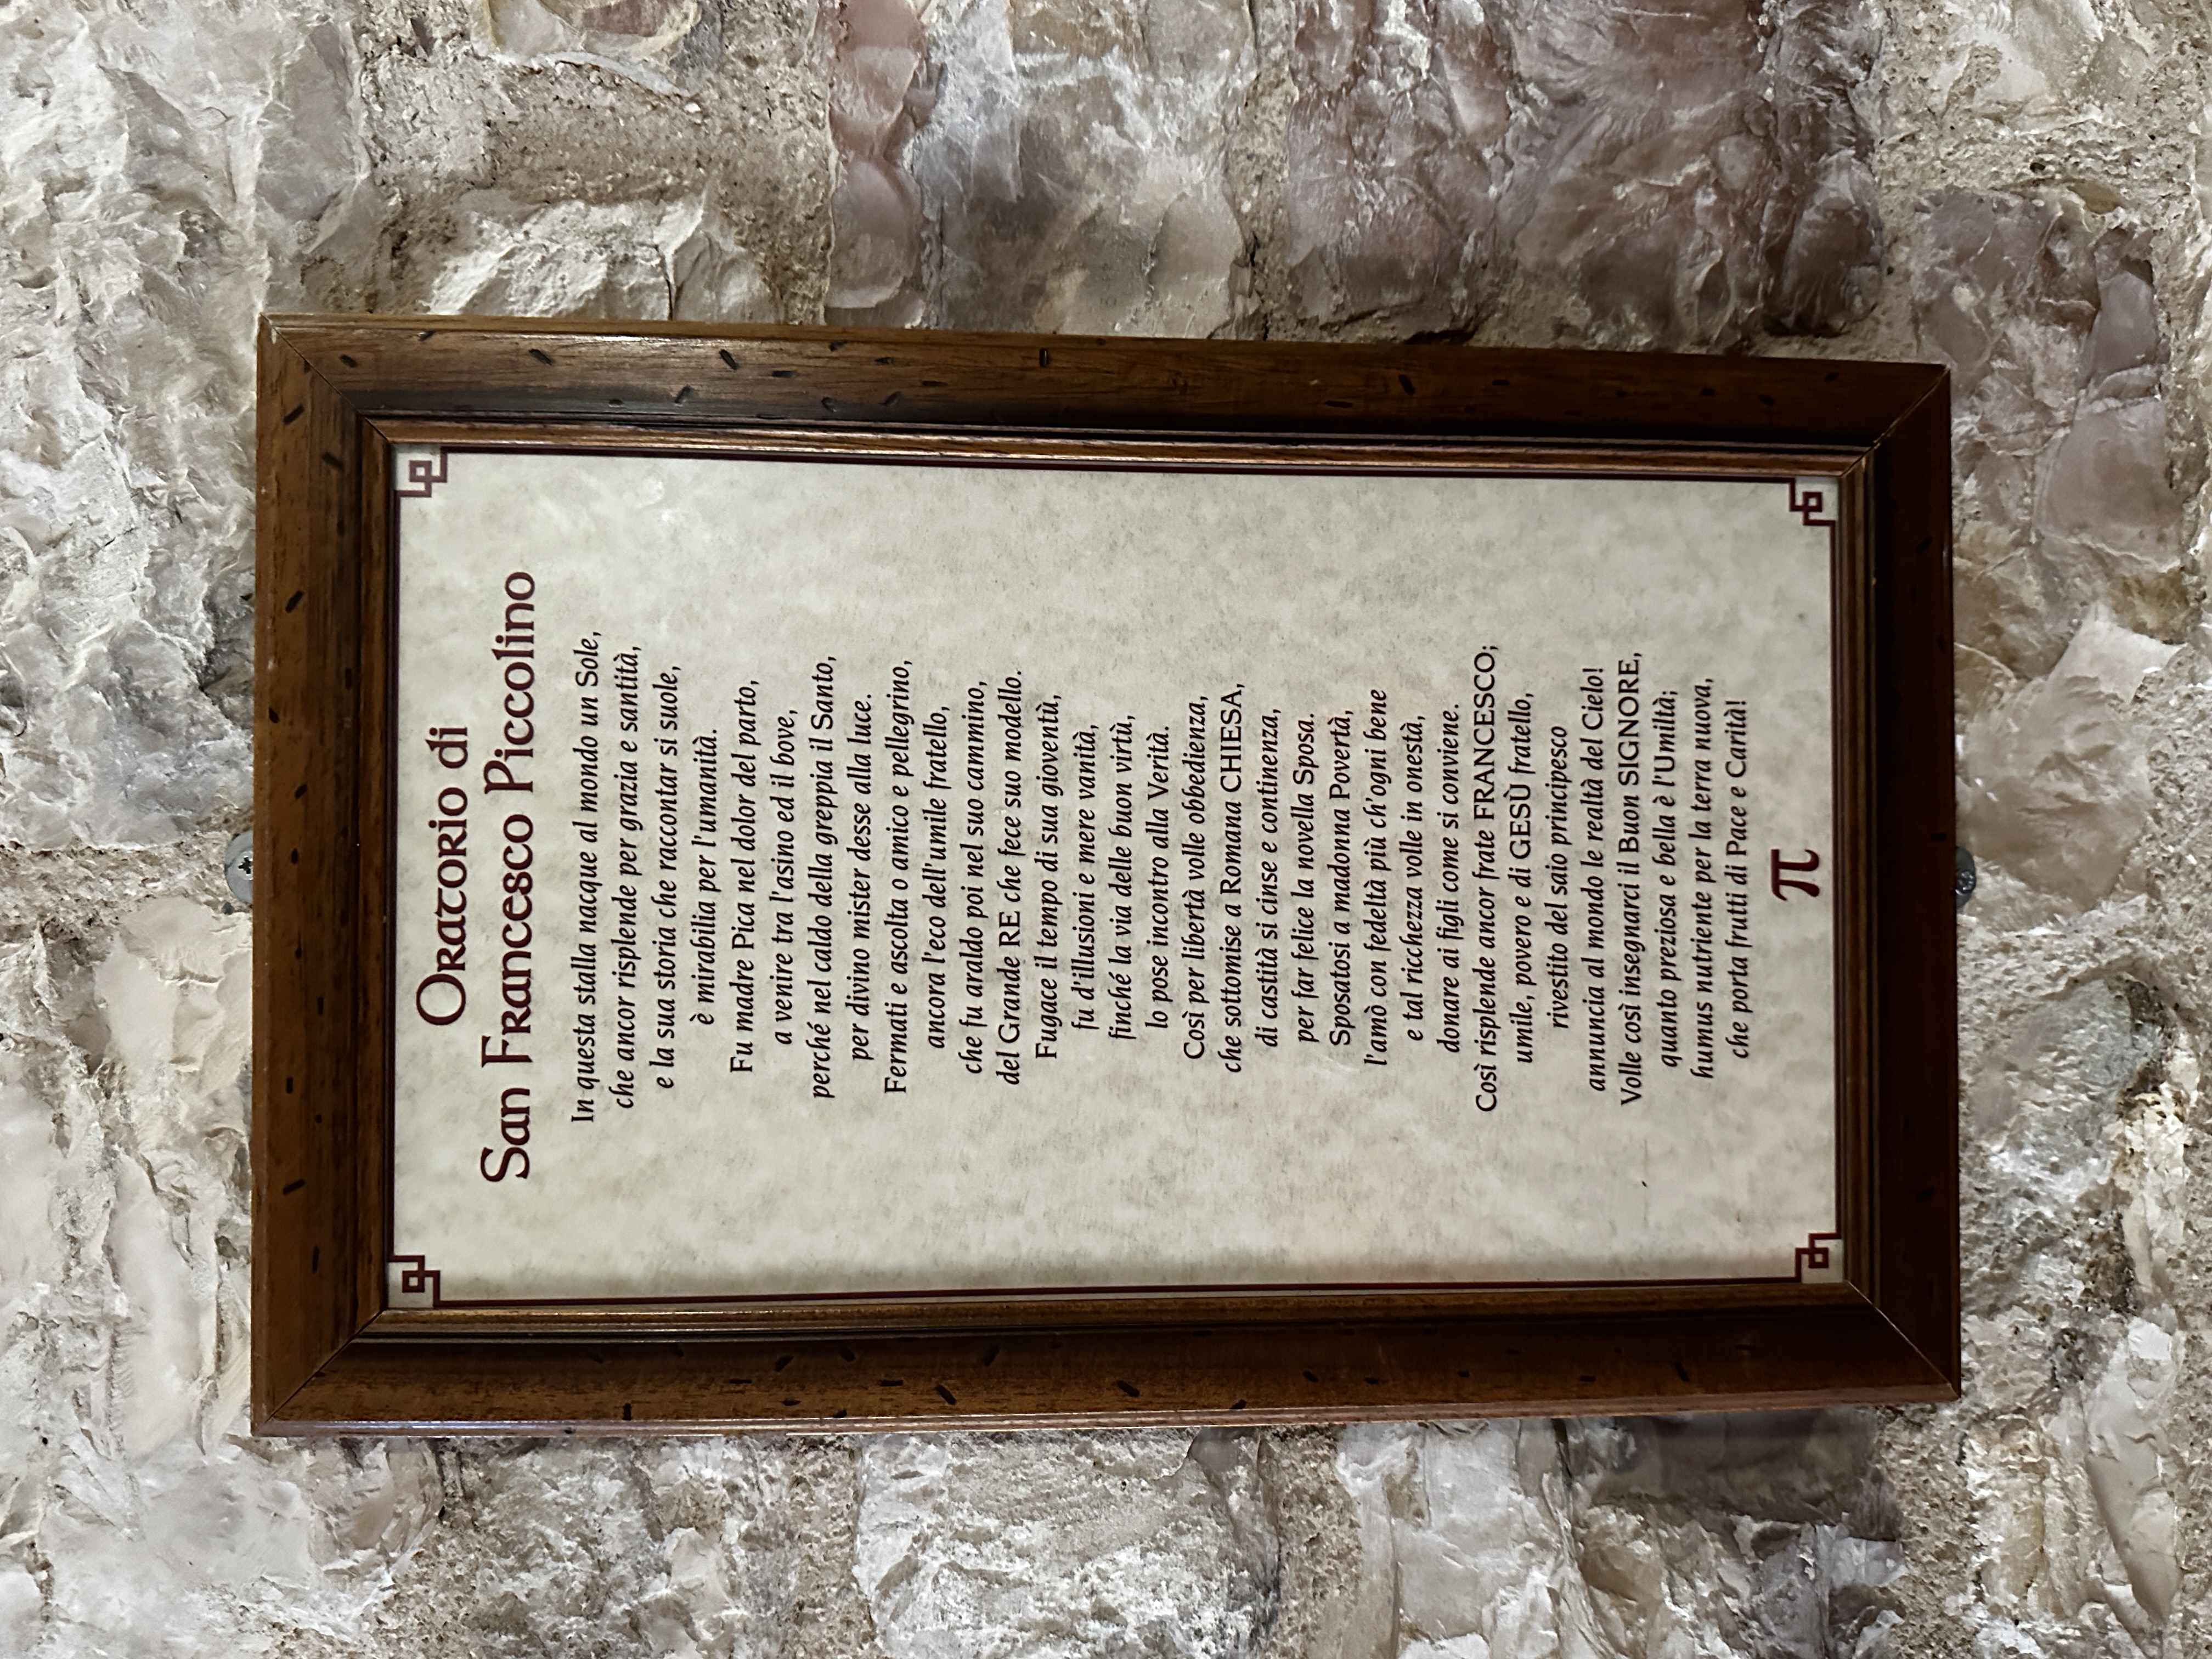 Oratorio di
San Francesco Piccolino
In questa stalla nacque al mondo un Sole,
che ancor risplende per grazia e santità,
e la sua storia che raccontar si suole,
è mirabilia per l'umanità.
Fu madre Pica nel dolor del parto,
a venire tra l'asino ed il bove,
perché nel caldo della greppia il Santo,
per divino mister desse alla luce.
Fermati e ascolta o amico e pellegrino,
ancora l'eco dell'umile fratello,
che fu araldo poi nel suo cammino,
del Grande RE che fece suo modello.
Fugace il tempo di sua gioventù,
fu d'illusioni e mere vanità,
finché la via delle buon virtù,
lo pose incontro alla Verità.
Così per libertà volle obbedienza,
che sottomise a Romana CHIESA,
di castità si cinse e continenza,
per far felice la novella Sposa.
Sposatosi a madonna Povertà,
l'amò con fedeltà più ch'ogni bene
e tal ricchezza volle in onestà,
donare ai figli come si conviene.
Così risplende ancor frate FRANCESCO;
umile, povero e di GESÙ fratello,
rivestito del saio principesco
annuncia al mondo le realtà del Cielo!
Volle così insegnarci il Buon SIGNORE,
quanto preziosa e bella è l'Umiltà;
humus nutriente per la terra nuova,
che porta frutti di Pace e Carità!
π